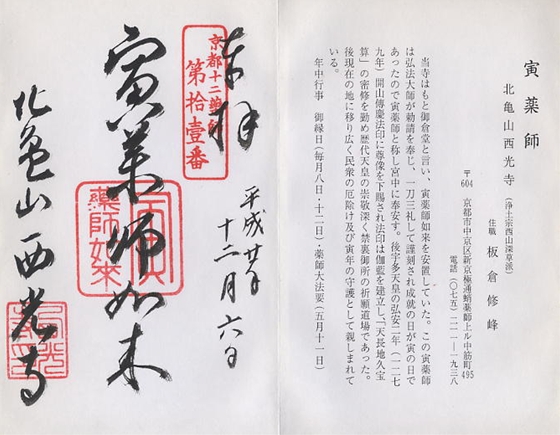 寅薬師
北亀山西光寺（浄土宗西山深草派）
住職 板倉修峰
〒604 京都市中京区新京極通蛸薬師上ル中筋町495
電話（〇七五）二二一―一九三八
当寺はもと御倉堂と言い、寅薬師如来を安置していた。この寅薬師
は弘法大師が勅請を奉じ、一刀三礼して謹刻され成就の日が寅の日で
あったので寅薬師と称し宮中に奉安す。後宇多天皇の弘安二年（一二七
九年）開山傳慶法印に尊像を下賜され法印は伽藍を建立し、「天長地久宝
算」の密修を勤め歴代天皇の崇敬深く禁裏御所の祈願道場であった。
後現在の地に移り広く民衆の厄除け及び寅年の守護として親しまれて
いる。
年中行事 御縁日（毎月八日・十二日）・薬師大法要（五月十一日）
奉拝
平成廿年
十二月六日
京都十二薬師
第拾壹番
寅薬師如来
寅
薬師如來
北亀山西光寺